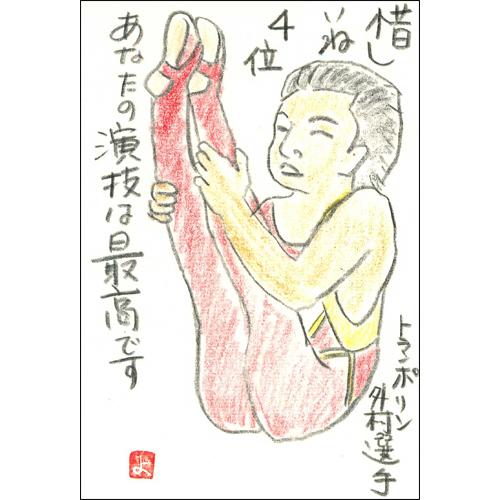 惜し
いね
4
位
あなたの演技は最高です
トランポリン
外村選手
よ